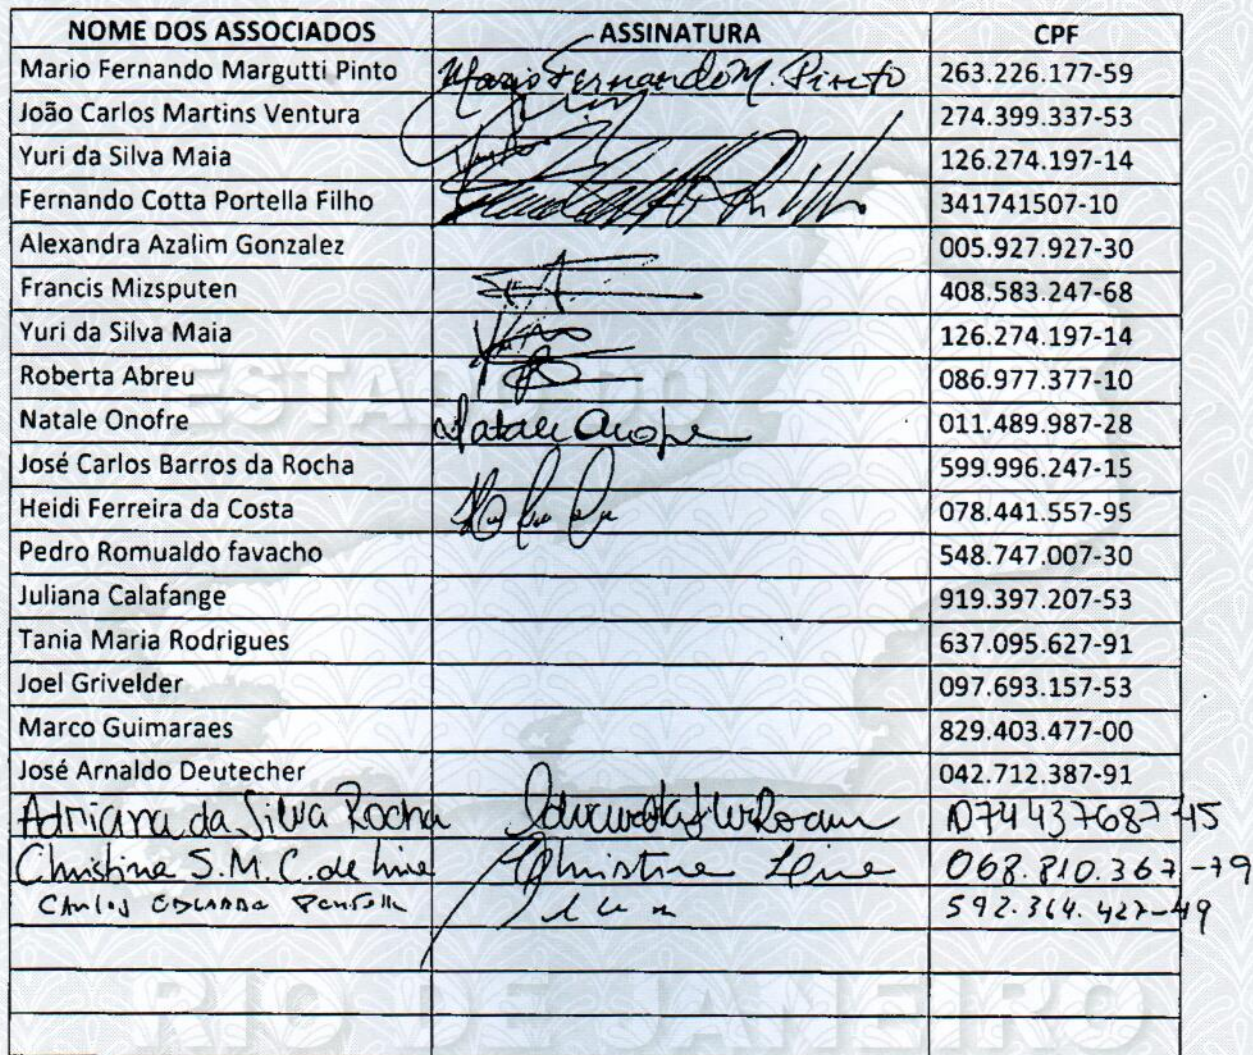 NOME DOS ASSOCIADOS ASSINATURA CPF
Mario Fernando Margutti Pinto Mario Fernando M. Pinto 263.226.177-59
João Carlos Martins Ventura 274.399.337-53
Yuri da Silva Maia 126.274.197-14
Fernando Cotta Portella Filho 341741507-10
Alexandra Azalim Gonzalez 005.927.927-30
Francis Mizsputen 408.583.247-68
Yuri da Silva Maia 126.274.197-14
Roberta Abreu 086.977.377-10
ESTADO DO
Natale Onofre Natale Onofre 011.489.987-28
José Carlos Barros da Rocha 599.996.247-15
Heidi Ferreira da Costa 078.441.557-95
Pedro Romualdo favacho 548.747.007-30
Juliana Calafange 919.397.207-53
Tania Maria Rodrigues 637.095.627-91
Joel Grivelder 097.693.157-53
Marco Guimaraes 829.403.477-00
José Arnaldo Deutecher 042.712.387-91
Adriana da Silva Rocha 074437687-45
Christina S.M.C. de Lima Christina Lima 068.810.367-79
Carlos Eduardo 592.364.427-49
RIO DE JANEIRO